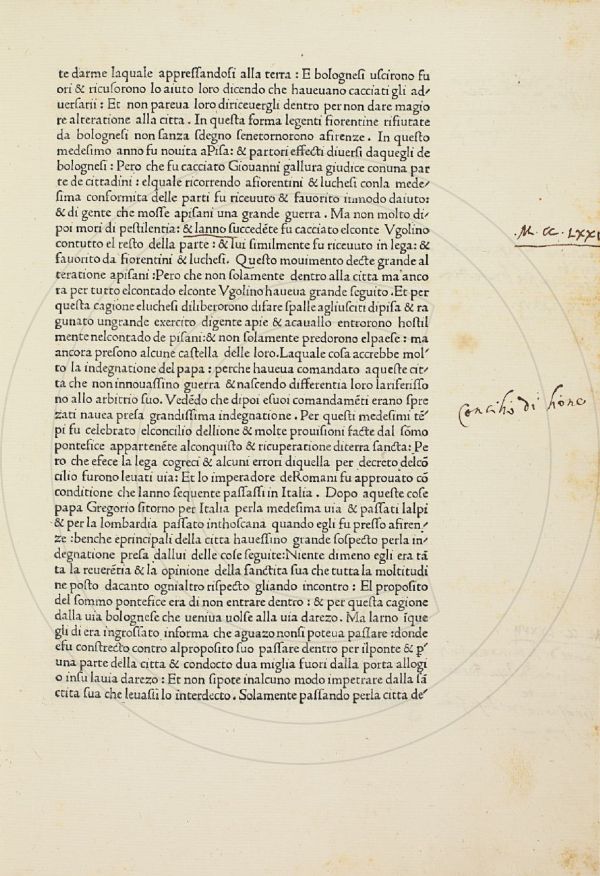 te darme laquale appressandosi alla terra : E bolognesi uscirono fu
ori & ricusorono lo aiuto loro dicendo che haueuano cacciati gli ad/
uersarii : Et non pareua loro diriceuergli dentro per non dare magio
re alteratione alla citta . In questa forma legenti fiorentine rifiutate
da bolognesi non sanza sdegno senetornorono afirenze . In questo
medesimo anno fu nouita aPisa: & partori effecti diuersi daquegli de
bolognesi : Pero che fu cacciato Giouanni gallura giudice conuna par
te de cittadini : elquale ricorrendo afiorentini & luchesi conla mede/
sima conformita delle parti fu riceuuto & fauorito inmodo daiuto:
& di gente che mosse apisani una grande guerra . Ma non molto di/
poi mori di pestilentia: & lanno succedẽte fu cacciato elconte Vgolino
contutto el resto della parte : & lui similmente fu riceuuto in lega: &
fauorito da fiorentini & luchesi. Questo mouimento decte grande al
teratione apisani :Pero che non solamente dentro alla citta ma anco
ra per tutto elcontado elconte Vgolino haueua grande seguito .Et per
questa cagione eluchesi diliberorono difare spalle agliusciti dipisa & ra
gunato ungrande exercito digente apie & acauallo entrorono hostil
mente nelcontado de pisani:& non solamente predorono elpaese : ma
ancora presono alcune castella delle loro.Laquale cosa accrebbe mol/
to la indegnatione del papa : perche haueua comandato aqueste cit/
ta che non innouassino guerra & nascendo differentia loro lariferisso
no allo arbitrio suo. Vedẽdo che dipoi esuoi comandamẽti erano spre
zati nauea presa grandissima indegnatione. Per questi medesimi tẽ/
pi fu celebrato elconcilio dellione & molte prouisioni facte dal sõmo
pontefice appartenẽte alconquisto & ricuperatione diterra sancta: Pe
ro che efece la lega cogreci & alcuni errori diquella per decreto delcõ
cilio furono leuati uia: Et lo imperadore deRomani fu approuato cõ
conditione che lanno sequente passassi in Italia . Dopo aqueste cose
papa Gregorio sitorno per Italia perla medesima uia & passati lalpi
& per la lombardia passato inthoscana quando egli fu presso afiren/
ze :benche eprincipali della citta hauessino grande sospecto perla in/
degnatione presa dallui delle cose seguite:Niente dimeno egli era tã
ta la reuerẽtia & la opinione della sanctita sua che tutta la moltitudi
ne posto dacanto ognialtro rispecto gliando incontro : El proposito
del sommo pontefice era di non entrare dentro : & per questa cagione
dalla uia bolognese che ueniua uolse alla uia darezo. Ma larno ĩque
gli di era ingrossato informa che aguazo nonsi poteua passare :donde
efu constrecto contro alproposito suo passare dentro per ilponte & p̃
una parte della citta & condocto dua miglia fuori dalla porta allogi
o insu lauia darezo : Et non sipote inalcuno modo impetrare dalla sã
ctita sua che leuassi lo interdecto. Solamente passando perla citta de/
Concilio di lione